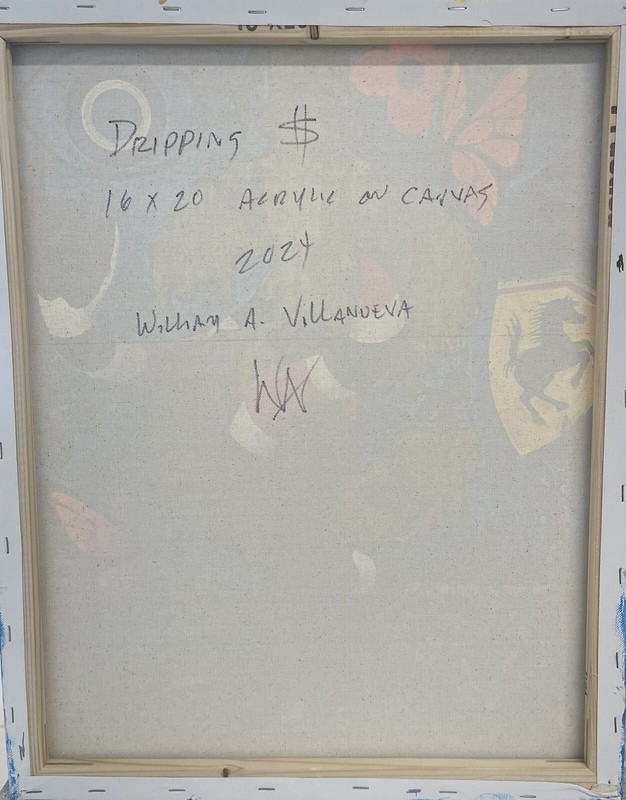 DRIPPING $
16 X 20 ACRYLIC ON CANVAS
2024
WILLIAM A. VILLANUEVA
WAV